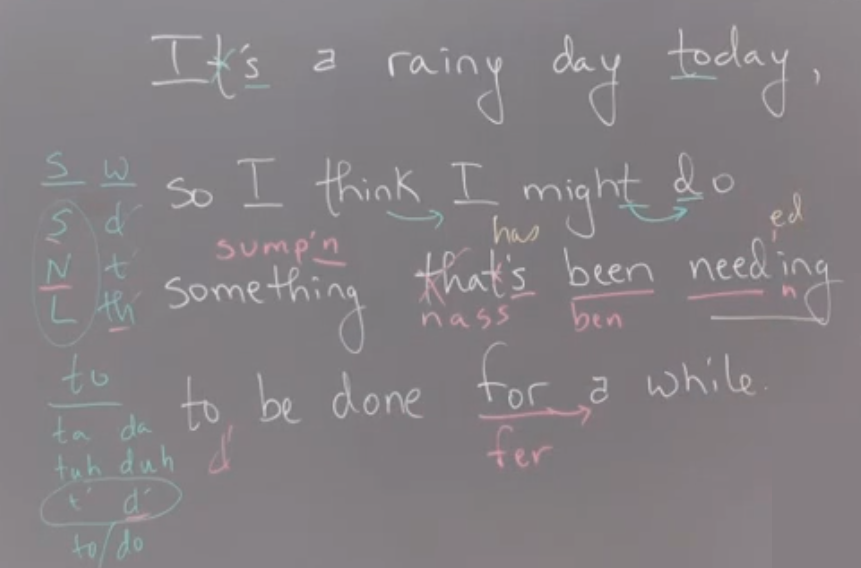 It's a rainy day today,
S W
so I think I might do
S d
has ed
sump'n
N t
something that's been needing
L th
nass ben n
to
to be done for a while.
ta da
d'
fer
tuh duh
t' d'
to/do